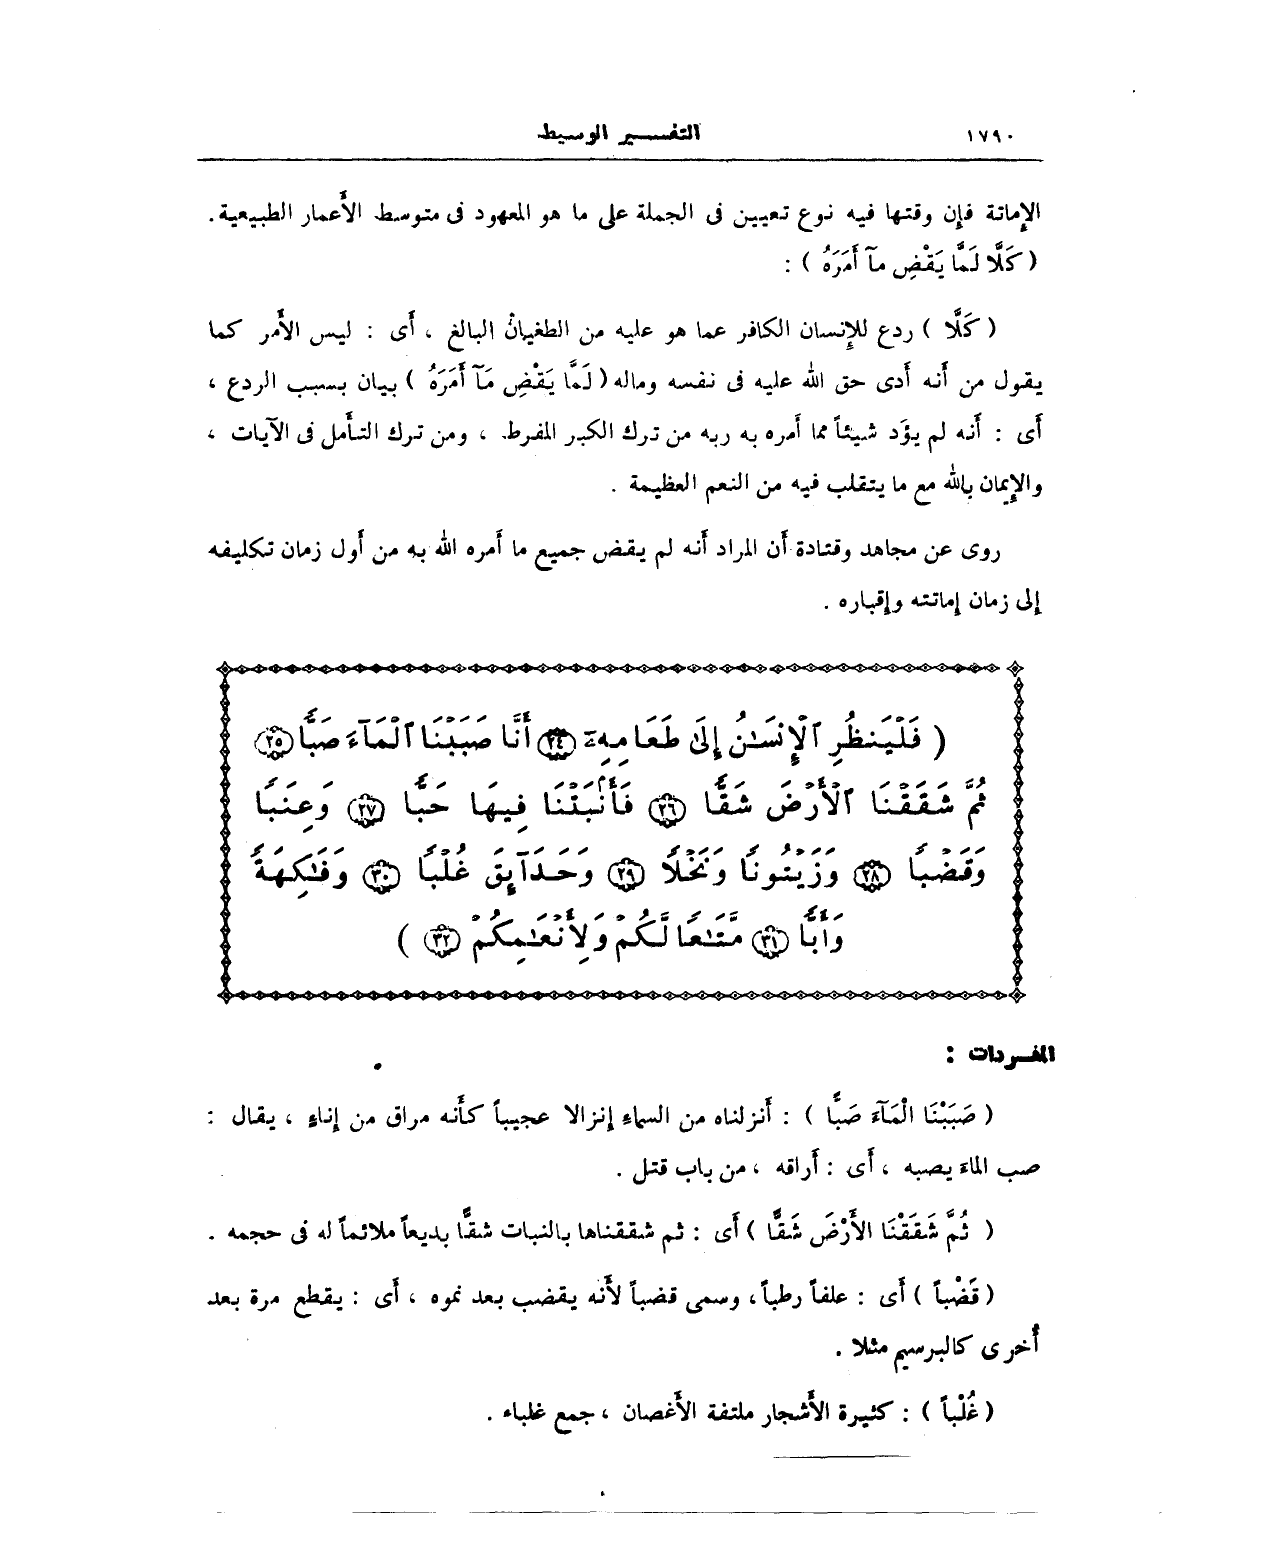 ١٧٩٠
التفسير الوسيط
الإماتة فإن وقتها فيه نوع تعيين فى الجملة على ما هو المعهود فى متوسط الأعمار الطبيعية .
( كَلَّا لَمَّا يَقْضِ مآ أَمَرَهُ ) :
( كَلَّا ) ردع للإنسان الكافر عما هو عليه من الطغيان البالغ ، أى : ليس الأمر كما
يقول من أنه أدى حق الله عليه فى نفسه وماله ( لَمَّا يَقْضِ مَآ أَمَرَهُ ) بيان بسبب الردع ،
أى : أنه لم يؤَد شيئاً مما أمره به ربه من ترك الكبر المفرط ، ومن ترك التأمل فى الآيات ،
والإيمان بالله مع ما يتقلب فيه من النعم العظيمة .
روى عن مجاهد وقتادة أن المراد أنه لم يقض جميع ما أمره الله به من أول زمان تكليفه
إلى زمان إماتته وإقباره .
( فَلْيَنظُرِ ٱلْإِنسَـٰنُ إِلَىٰ طَعَامِهِۦٓ ٢٤ أَنَّا صَبَبْنَا ٱلْمَآءَ صَبًّا ٢٥
ثُمَّ شَقَقْنَا ٱلْأَرْضَ شَقًّا ٢٦ فَأَنۢبَتْنَا فِيهَا حَبًّا ٢٧ وَعِنَبًا
وَقَضْبًا ٢٨ وَزَيْتُونًا وَنَخْلًا ٢٩ وَحَدَآئِقَ غُلْبًا ٣٠ وَفَـٰكِهَةً
وَأَبًّا ٣١ مَّتَـٰعًا لَّكُمْ وَلِأَنْعَـٰمِكُمْ ٣٢ )
المفردات :
( صَبَبْنَا الْمَآءَ صَبًّا ) : أنزلناه من السماءِ إنزالا عجيباً كأنه مراق من إناءٍ ، يقال :
صب الماءَ يصبه ، أى : أراقه ، من باب قتل .
( ثُمَّ شَقَقْنَا الأَرْضَ شَقًّا ) أى : ثم شققناها بالنبات شقًّا بديعاً ملائماً له فى حجمه .
( قَضْباً ) أى : علفاً رطباً ، وسمى قضباً لأنه يقضب بعد نموه ، أى : يقطع مرة بعد
أخرى كالبرسيم مثلا .
( غُلْباً ) : كثيرة الأشجار ملتفة الأغصان ، جمع غلباء .